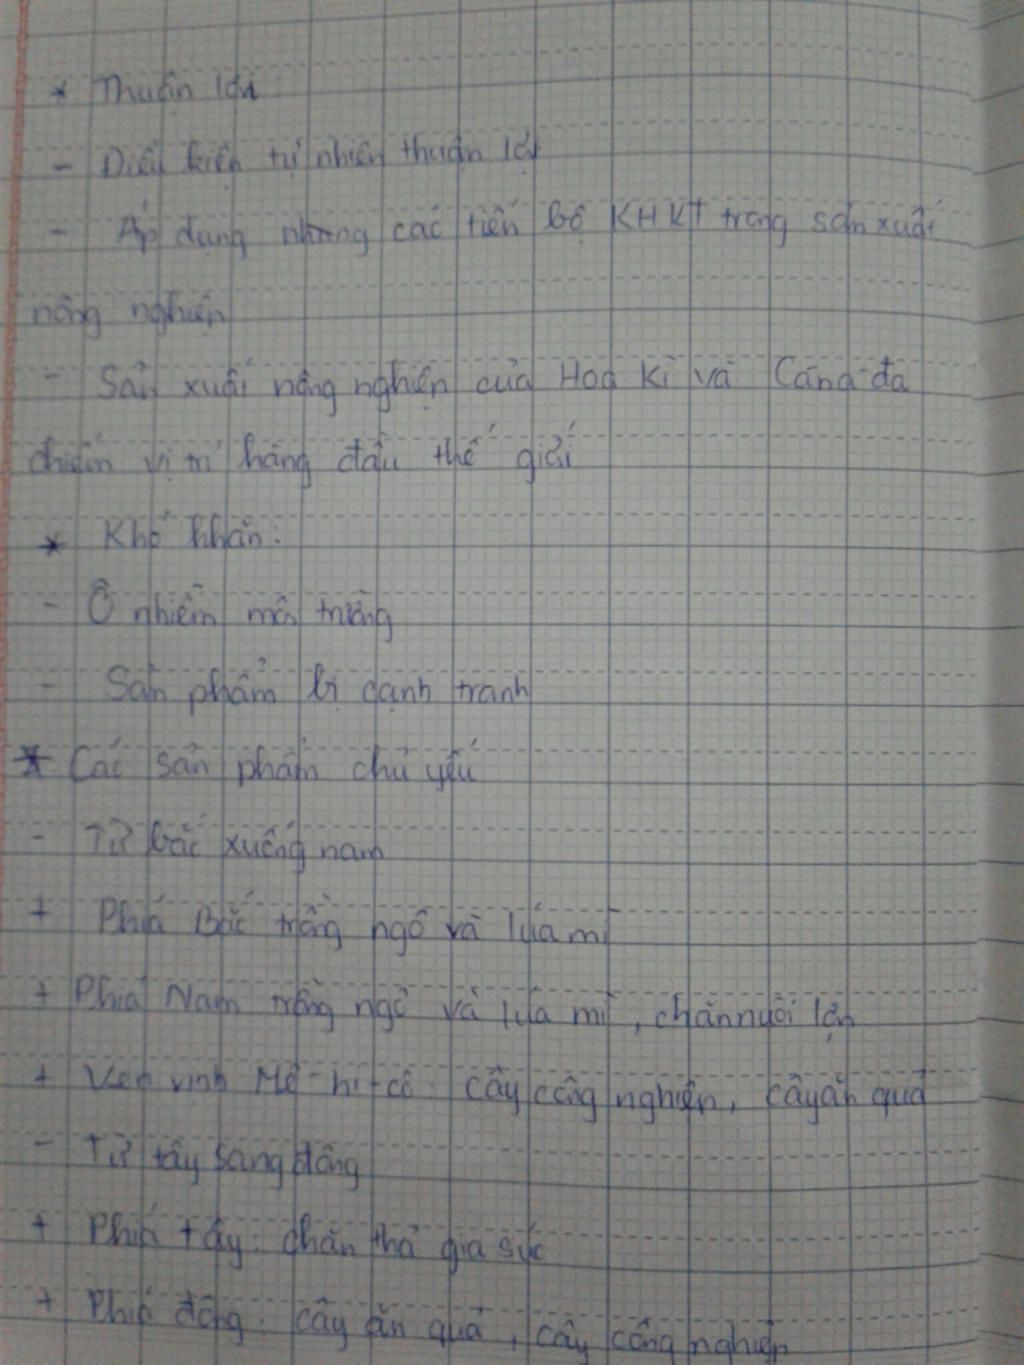 * Thuận lợi
- Điều kiện tự nhiên thuận lợi
- Áp dụng những các tiến bộ KHKT trong sản xuất
nông nghiệp
- Sản xuất nông nghiệp của Hoa Kì và Cana-đa
chiếm vị trí hàng đầu thế giới
* Khó khăn:
- Ô nhiễm môi trường
- Sản phẩm bị cạnh tranh
* Các sản phẩm chủ yếu
- Từ bắc xuống nam
+ Phía Bắc trồng ngô và lúa mì
+ Phía Nam trồng ngô và lúa mì, chăn nuôi lợn
+ Ven vịnh Mê-hi-cô: cây công nghiệp, cây ăn quả
- Từ tây sang đông
+ Phía tây: chăn thả gia súc
+ Phía đông: cây ăn quả, cây công nghiệp